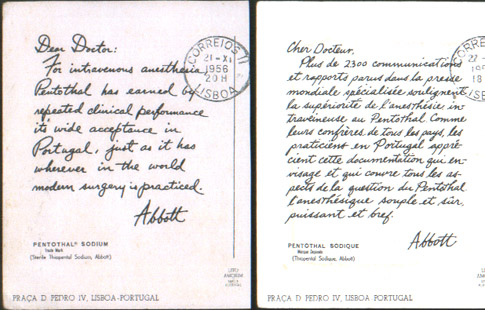 Dear Doctor:
For intravenous anesthesia
Pentothal has earned by
repeated clinical performance
its wide acceptance in
Portugal, just as it has
wherever in the world
modern surgery is practiced.
Abbott
CORREIOS
21-XI
1956
20H
LISBOA
PENTOTHAL® SODIUM
Trade Mark
(Sterile Thiopental Sodium, Abbott)
PRAÇA D. PEDRO IV, LISBOA-PORTUGAL
Cher Docteur,
Plus de 2300 communications
et rapports parus dans la presse
mondiale spécialisée soulignent
la supériorité de l'anesthésie in-
traveineuse au Pentothal. Comme
leurs confrères de tous les pays, les
praticiens en Portugal appré-
cient cette documentation qui en-
visage et qui couvre tous les as-
pects de la question du Pentothal
l'anesthésique souple et sûr,
puissant et bref.
Abbott
CORREIOS
22
LISBOA
PENTOTHAL SODIQUE
Marque Déposée
(Thiopental Sodique, Abbott)
PRAÇA D. PEDRO IV, LISBOA-PORTUGAL